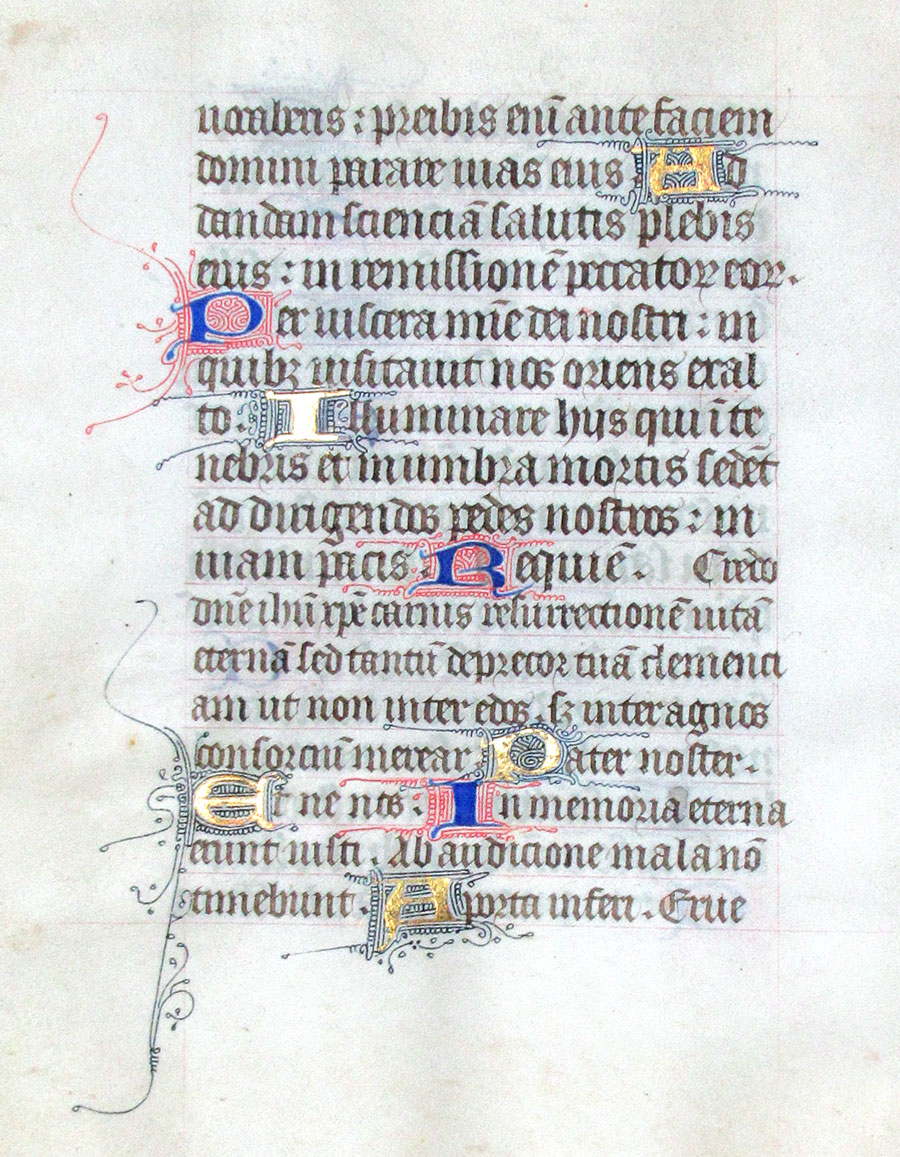 vocaberis : preibis enī ante faciem
domini parare vias eius . Ad
dandam scienciā salutis plebis
eius : in remissionē peccator eor .
Per viscera mīe dei nostri : in
quibꝫ visitavit nos oriens exal
to . Illuminare hys qui ī te
nebris et in umbra mortis sedēt
ad dirigendos pedes nostros : in
viam pacis . Requiē . Credo
dn̄e ihū xp̄e carnis resurrectionē vitā
eternā sed tantū deprecor tuā clemenci
am ut non inter edos . sꝫ inter agnos
consorciū merear . Pater noster .
Et ne nos . In memoria eterna
erunt iusti . Ab audicione mala nō
timebunt . A porta inferi . Erue